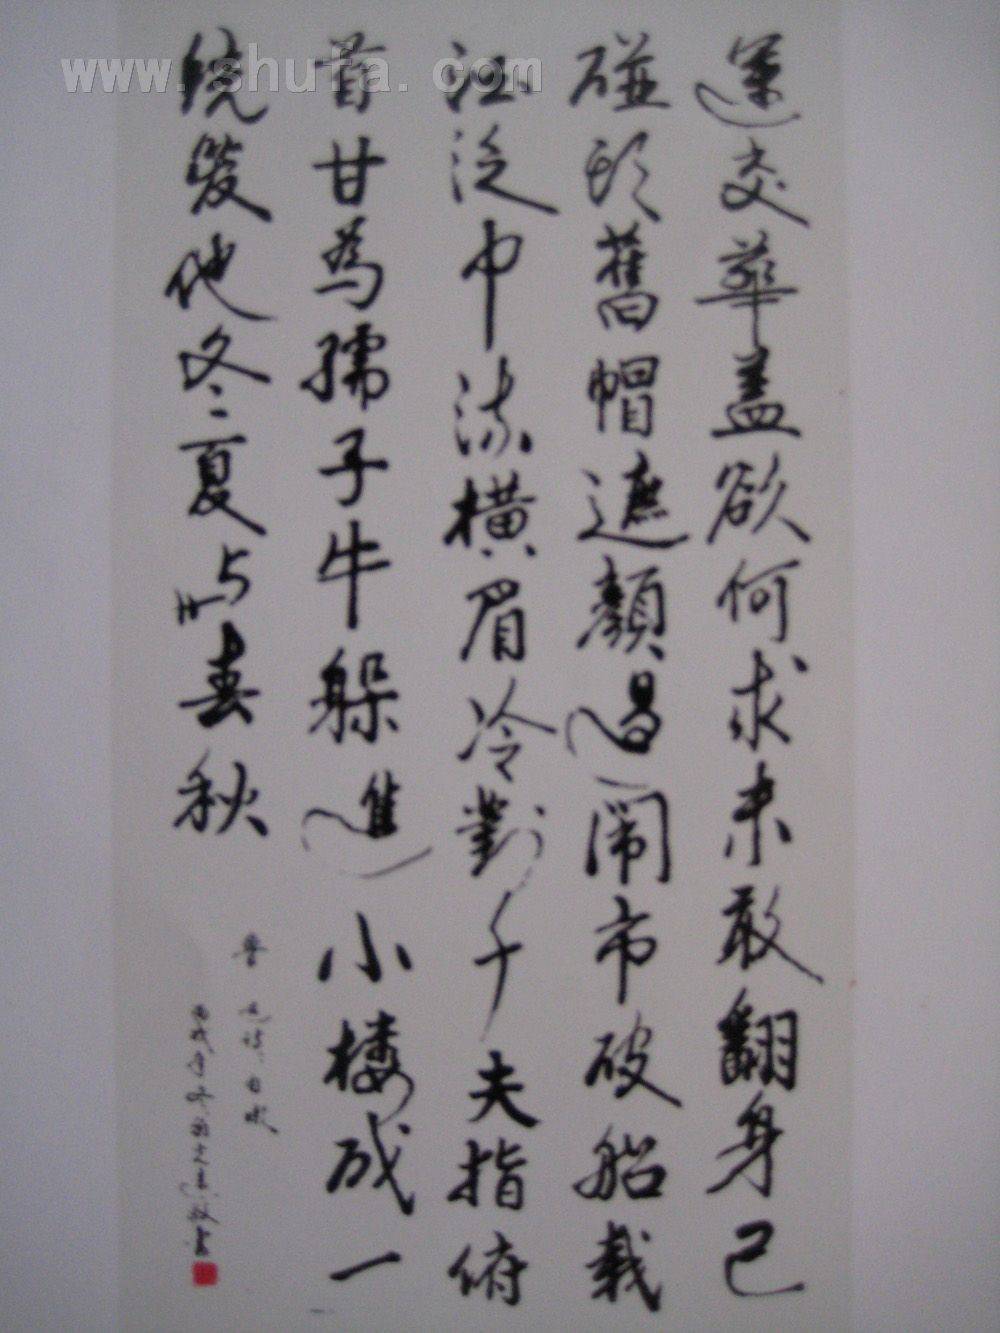 運交華盖欲何求未敢翻身已
碰頭舊帽遮顏過鬧市破船載
酒泛中流橫眉冷對千夫指俯
首甘為孺子牛躲進小樓成一
統管他冬夏與春秋
魯迅詩自嘲
丙戌年冬